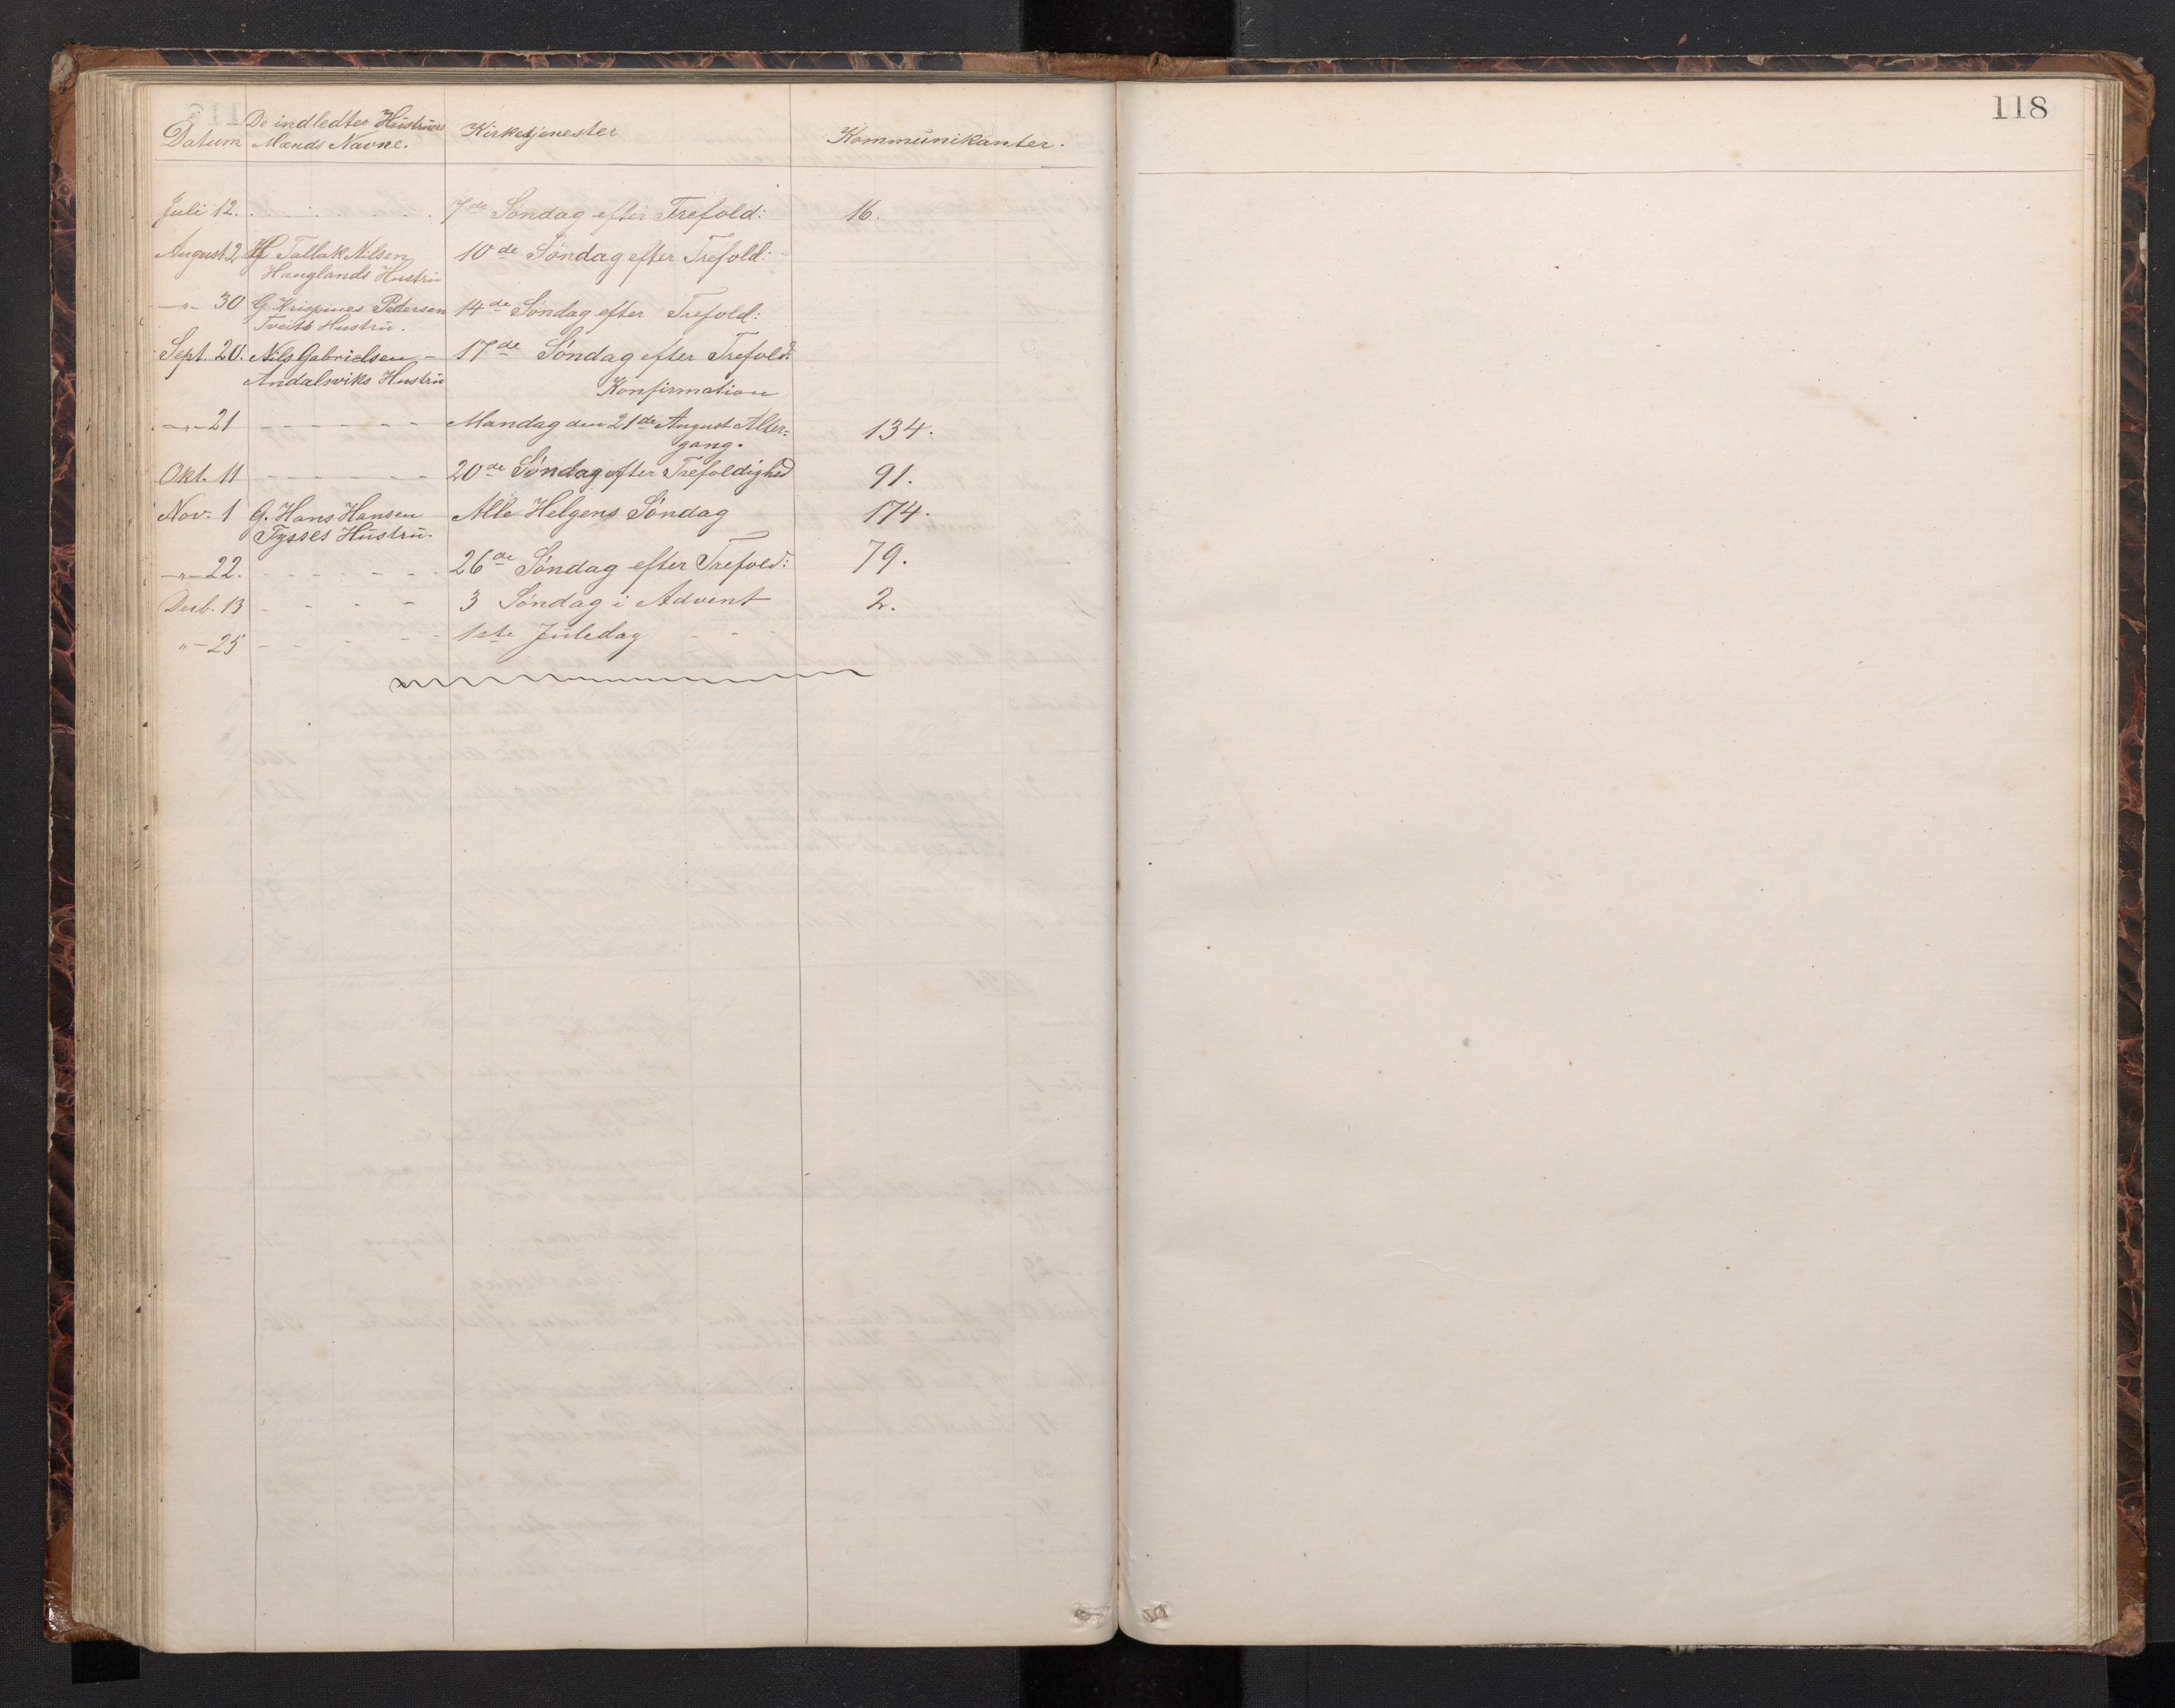 118
Datum De indledtes Hustruers Mænds Navne. Kirketjenester Kommunikanter.
Juli 12. 7de Søndag efter Trefold: 16.
August 2. Tallak Nilsen 10de Søndag efter Trefold:
Hauglands Hustru
-"- 30 G. Krispines Petersen 14de Søndag efter Trefold:
Tveits Hustru.
Sept. 20. Nils Gabrielsen 17de Søndag efter Trefold:
Andalsviks Hustru Konfirmation
-"- 21 Mandag den 21de August Alter= 134.
gang.
Okt. 11 20de Søndag efter Trefoldighed 91.
Nov. 1 G. Hans Hansen Alle Helgens Søndag 174.
Tysses Hustru.
-"- 22. 26de Søndag efter Trefold: 79.
Desb. 13 3 Søndag i Advent 2.
"- 25 1ste Juledag